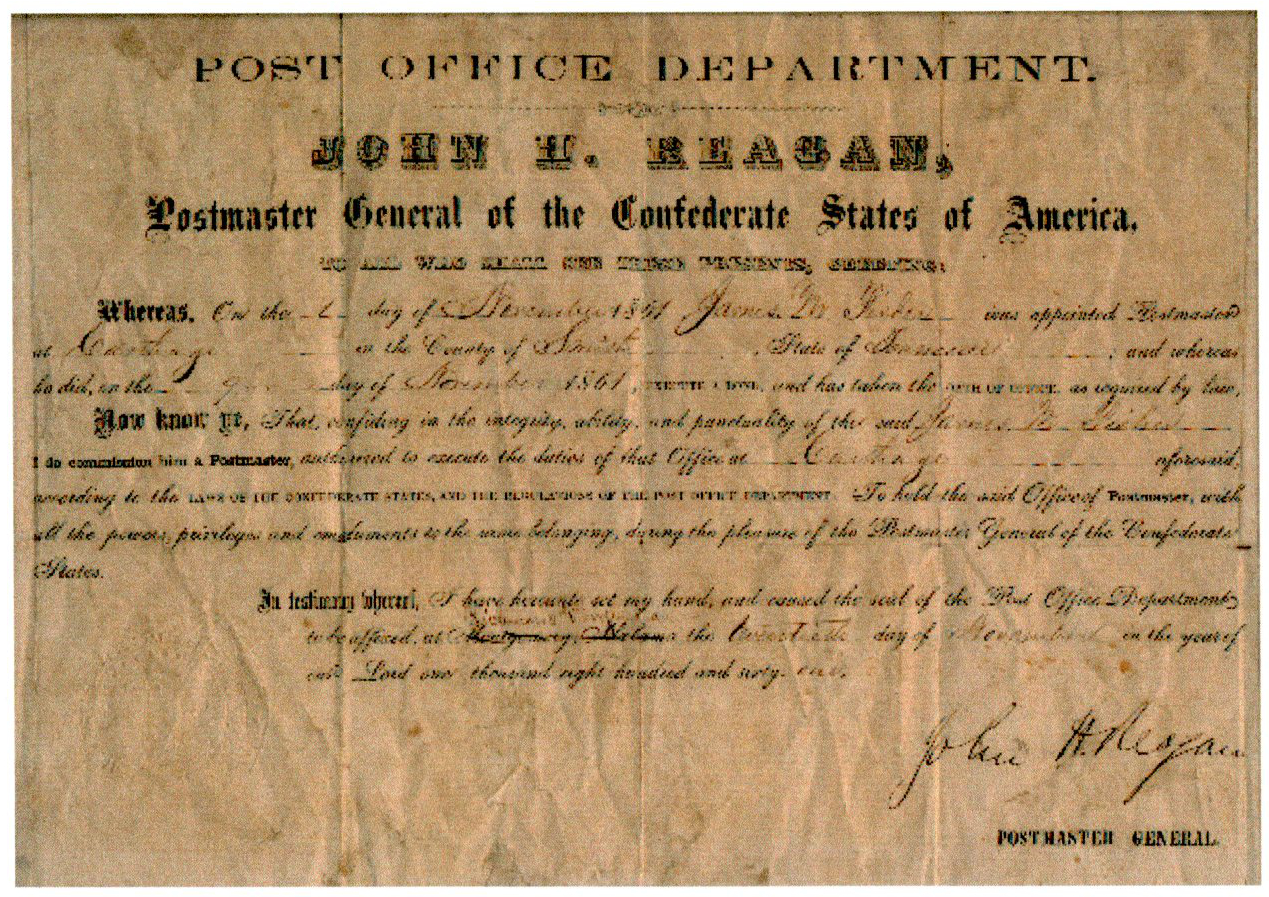 POST OFFICE DEPARTMENT.
JOHN H. REAGAN,
Postmaster General of the Confederate States of America.
TO ALL WHO SHALL SEE THESE PRESENTS, GREETING:
Whereas, On the day of November 1861 James M. Fisher was appointed Postmaster
at Carthage in the County of Smith, State of Tennessee; and whereas
he did, on the day of November 1861, EXECUTE A BOND, and has taken the OATH OF OFFICE, as required by law,
Now know ye, That, confiding in the integrity, ability, and punctuality of the said James M. Fisher
I do commission him a Postmaster, authorized to execute the duties of that Office at Carthage aforesaid,
according to the LAWS OF THE CONFEDERATE STATES, AND THE REGULATIONS OF THE POST OFFICE DEPARTMENT. To hold the said Office of Postmaster, with
all the powers, privileges and emoluments to the same belonging, during the pleasure of the Postmaster General of the Confederate
States.
In testimony whereof, I have hereunto set my hand, and caused the seal of the Post Office Department
to be affixed, at Montgomery, Alabama the twentieth day of November in the year of
our Lord one thousand eight hundred and sixty-one.
John H. Reagan
POSTMASTER GENERAL.